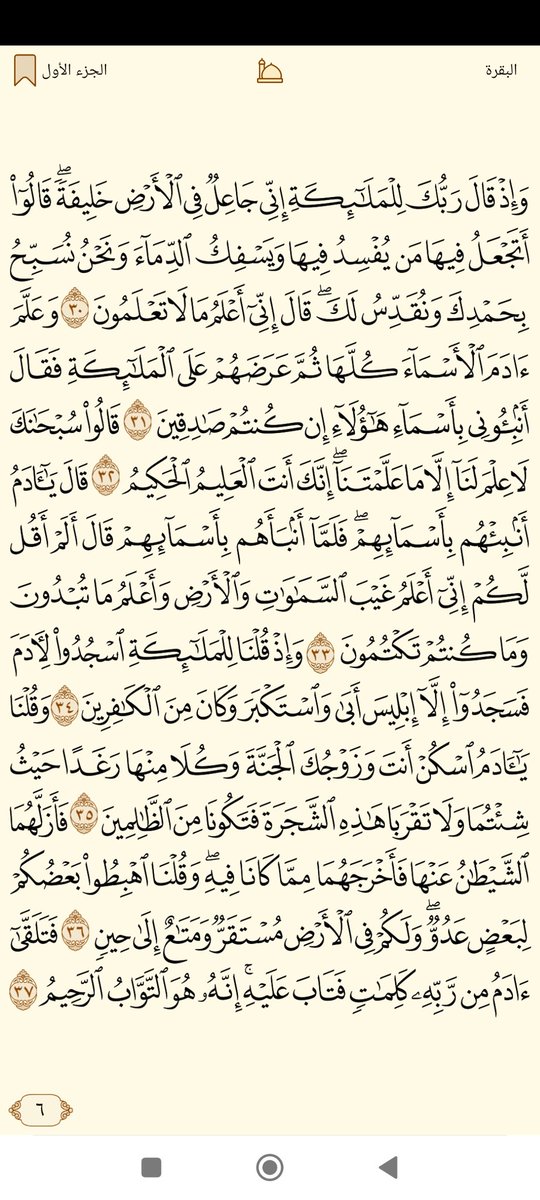 البقرة
الجزء الأول
وَإِذْ قَالَ رَبُّكَ لِلْمَلَٰٓئِكَةِ إِنِّي جَاعِلٌ فِي ٱلْأَرْضِ خَلِيفَةٗۖ قَالُوٓاْ
أَتَجْعَلُ فِيهَا مَن يُفْسِدُ فِيهَا وَيَسْفِكُ ٱلدِّمَآءَ وَنَحْنُ نُسَبِّحُ
بِحَمْدِكَ وَنُقَدِّسُ لَكَۖ قَالَ إِنِّيٓ أَعْلَمُ مَا لَا تَعْلَمُونَ ٣٠ وَعَلَّمَ
ءَادَمَ ٱلْأَسْمَآءَ كُلَّهَا ثُمَّ عَرَضَهُمْ عَلَى ٱلْمَلَٰٓئِكَةِ فَقَالَ
أَنۢبِـُٔونِي بِأَسْمَآءِ هَٰٓؤُلَآءِ إِن كُنتُمْ صَٰدِقِينَ ٣١ قَالُواْ سُبْحَٰنَكَ
لَا عِلْمَ لَنَآ إِلَّا مَا عَلَّمْتَنَآۖ إِنَّكَ أَنتَ ٱلْعَلِيمُ ٱلْحَكِيمُ ٣٢ قَالَ يَٰٓـَٔادَمُ
أَنۢبِئْهُم بِأَسْمَآئِهِمْۖ فَلَمَّآ أَنۢبَأَهُم بِأَسْمَآئِهِمْ قَالَ أَلَمْ أَقُل
لَّكُمْ إِنِّيٓ أَعْلَمُ غَيْبَ ٱلسَّمَٰوَٰتِ وَٱلْأَرْضِ وَأَعْلَمُ مَا تُبْدُونَ
وَمَا كُنتُمْ تَكْتُمُونَ ٣٣ وَإِذْ قُلْنَا لِلْمَلَٰٓئِكَةِ ٱسْجُدُواْ لِأٓدَمَ
فَسَجَدُوٓاْ إِلَّآ إِبْلِيسَ أَبَىٰ وَٱسْتَكْبَرَ وَكَانَ مِنَ ٱلْكَٰفِرِينَ ٣٤ وَقُلْنَا
يَٰٓـَٔادَمُ ٱسْكُنْ أَنتَ وَزَوْجُكَ ٱلْجَنَّةَ وَكُلَا مِنْهَا رَغَدًا حَيْثُ
شِئْتُمَا وَلَا تَقْرَبَا هَٰذِهِ ٱلشَّجَرَةَ فَتَكُونَا مِنَ ٱلظَّٰلِمِينَ ٣٥ فَأَزَلَّهُمَا
ٱلشَّيْطَٰنُ عَنْهَا فَأَخْرَجَهُمَا مِمَّا كَانَا فِيهِۖ وَقُلْنَا ٱهْبِطُواْ بَعْضُكُمْ
لِبَعْضٍ عَدُوّٞۖ وَلَكُمْ فِي ٱلْأَرْضِ مُسْتَقَرّٞ وَمَتَٰعٌ إِلَىٰ حِينٖ ٣٦ فَتَلَقَّىٰٓ
ءَادَمُ مِن رَّبِّهِۦ كَلِمَٰتٖ فَتَابَ عَلَيْهِۚ إِنَّهُۥ هُوَ ٱلتَّوَّابُ ٱلرَّحِيمُ ٣٧
٦